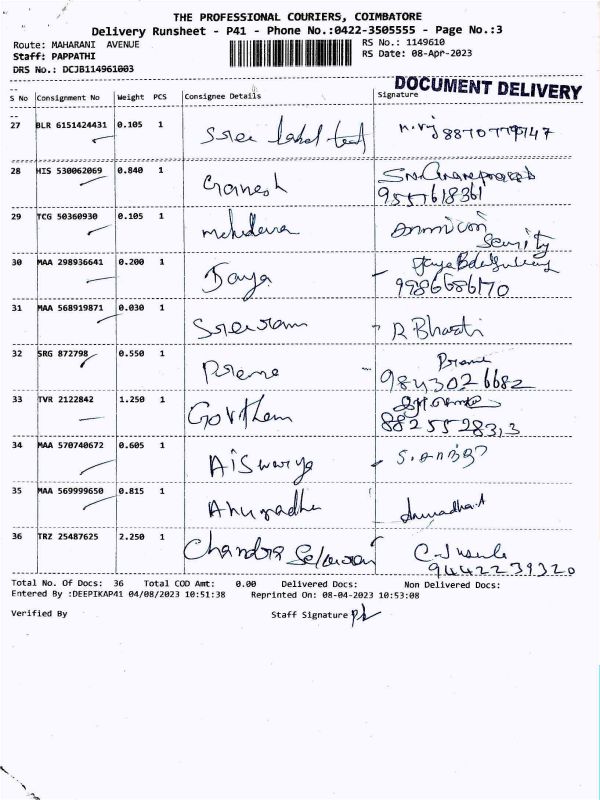 THE PROFESSIONAL COURIERS, COIMBATORE
Delivery Runsheet - P41 - Phone No.:0422-3505555 - Page No.:3
Route: MAHARANI AVENUE RS No.: 1149610
Staff: PAPPATHI RS Date: 08-Apr-2023
DRS No.: DCJB114961003
DOCUMENT DELIVERY
S No Consignment No Weight PCS Consignee Details Signature
27 BLR 6151424431 0.105 1 Sree
28 HIS 530062069 0.840 1 Ganesh
9557618361
29 TCG 50360930 0.105 1
Security
30 MAA 298936641 0.200 1 Jaya
9986686170
31 MAA 568919871 0.030 1 Sreeram R Bharti
32 SRG 872798 0.550 1 Preme
9843026682
33 TVR 2122842 1.250 1 Govtham
8825528313
34 MAA 570740672 0.605 1 Aiswarya
35 MAA 569999650 0.815 1 Anuradha Anuradha.A
36 TRZ 25487625 2.250 1 Chandra Selvaran
9442239320
Total No. Of Docs: 36 Total COD Amt: 0.00 Delivered Docs: Non Delivered Docs:
Entered By :DEEPIKAP41 04/08/2023 10:51:38 Reprinted On: 08-04-2023 10:53:08
Verified By Staff Signature